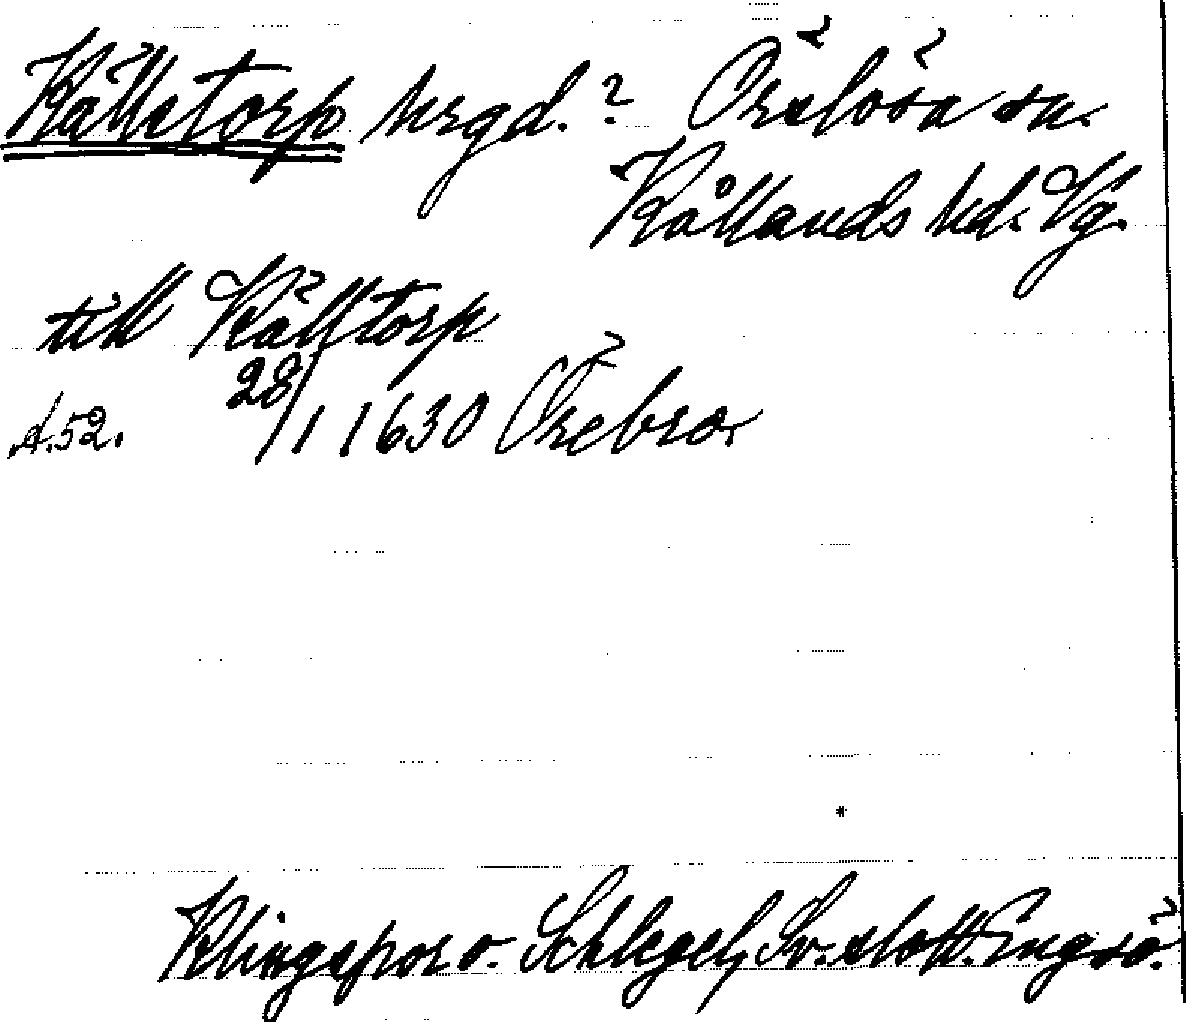 Källstorp hrgd.? Örslösa sn.
Kållands hd. Vg.
till Källtorp
28/1 1630 Örebro.
A.52.
Klingspor o. Schlegel, Sv. slott. Engsö.